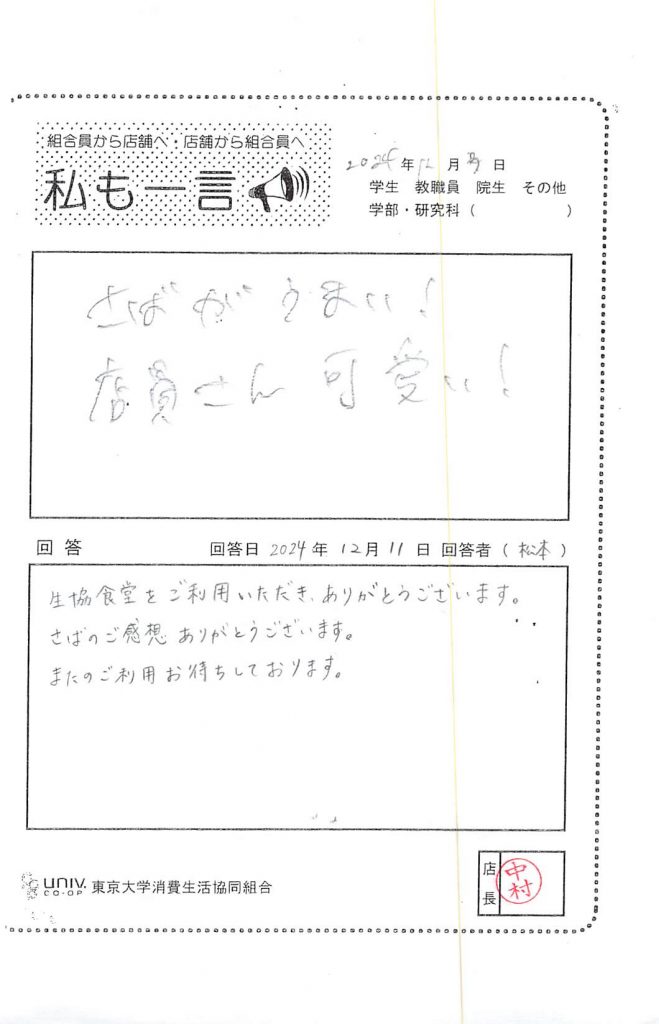 組合員から店舗へ・店舗から組合員へ
私も一言
2024年12月 日
学生 教職員 院生 その他
学部・研究科（ ）
さばがうまい！
店員さん可愛い！
回答 回答日 2024年12月11日 回答者（松本）
生協食堂をご利用いただき、ありがとうございます。
さばのご感想ありがとうございます。
またのご利用お待ちしております。
UNIV. CO-OP 東京大学消費生活協同組合
店長 中村